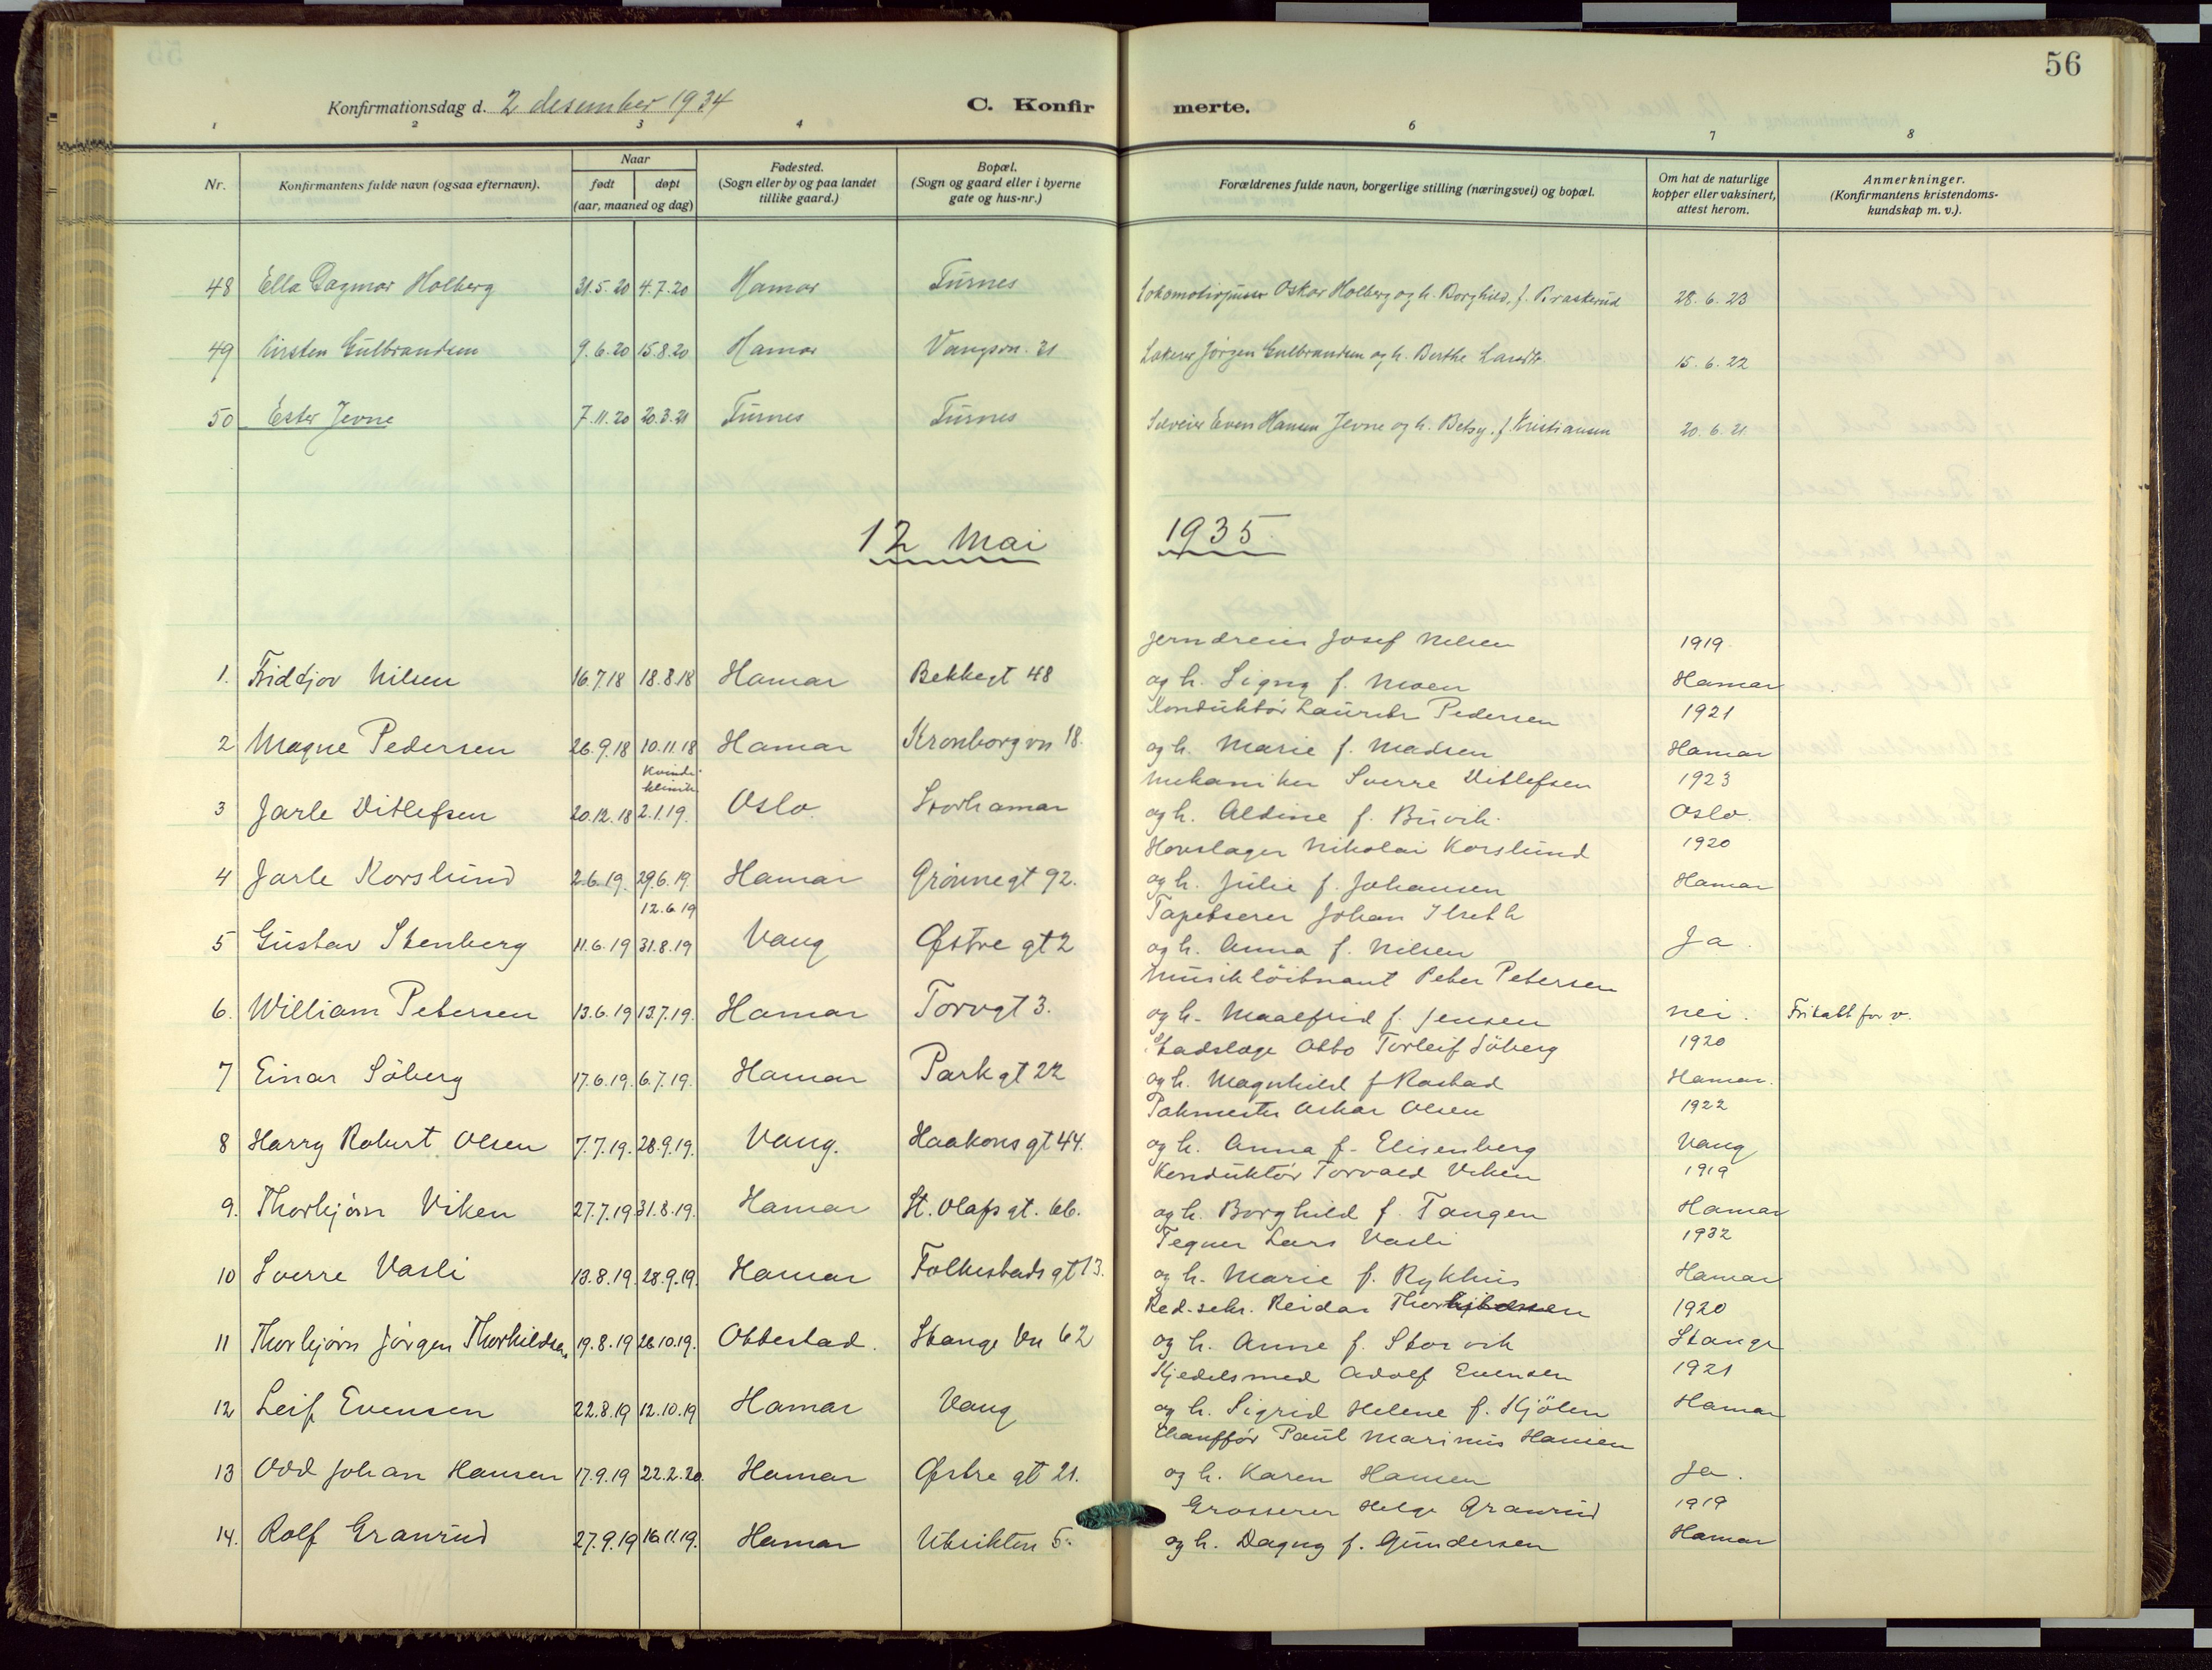 56
Konfirmationsdag d. 2 desember 1934
C. Konfirmerte.
1 2 3 4 6 7 8
Nr.
Konfirmantens fulde navn (ogsaa efternavn).
Naar
født døpt
(aar, maaned og dag)
Fødested.
(Sogn eller by og paa landet
tillike gaard.)
Bopæl.
(Sogn og gaard eller i byerne
gate og hus-nr.)
Forældrenes fulde navn, borgerlige stilling (næringsvei) og bopæl.
Om hat de naturlige
kopper eller vaksinert,
attest herom.
Anmerkninger.
(Konfirmantens kristendoms-
kundskap m. v.).
48 Ella Dagmar Holberg 31.5.20 4.7.20 Hamar Furnes Lokomotivpusser Oskar Holberg og h. Borghild, f. Braskerud 28.6.23
49 Kirsten Gulbrandsen 9.6.20 15.8.20 Hamar Vangsvn. 21 Jørgen Gulbrandsen og h. Berthe 15.6.22
50 Ester Jevne 7.11.20 20.3.21 Furnes Furnes Even Hansen Jevne og h. Betsy, f. Kristiansen 20.6.21
12 Mai 1935.
Jerndreier Josef Nilsen 1919
1. Fridtjov Nilsen 16.7.18 18.8.18 Hamar Bekkegt 48 og h. Signy f. Moen Hamar
Konduktör Laurits Pedersen 1921
2 Magne Pedersen 26.9.18 10.11.18 Hamar Kronborgvn 18. og h. Marie f. Madsen Hamar
Kvinde-
klinik.
Mekaniker Sverre Ditlefsen 1923
3 Jarle Ditlefsen 20.12.18 2.1.19. Oslo Storhamar og h. Aldine f. Buvik. Oslo.
Hovslager Nikolai Korslund 1920
4 Jarle Korslund 2.6.19. 29.6.19. Hamar Grönnegt 92. og h. Julie f. Johansen Hamar
12.6.19
Tapetserer Johan Ilseth
5 Gustav Stenberg 11.6.19 31.8.19 Vang Østre gt 2 og h. Anna f. Nilsen Ja.
Musiklöitnant Peter Petersen
6. William Petersen 13.6.19 13.7.19. Hamar Torvgt 3. og h. Maalfrid f. Jensen nei. Fritatt for v.
Stadslæge Otto Torleif Söberg 1920
7 Einar Söberg 17.6.19. 6.7.19. Hamar Parkgt 22 og h. Magnhild f. Rostad Hamar.
Pakmester Oskar Olsen 1922
8 Harry Robert Olsen 7.7.19. 28.9.19. Vang. Haakonsgt 44. og h. Anna f. Elisenberg Vang
Konduktör Torvald Viken 1919
9. Thorbjörn Viken 27.7.19 31.8.19. Hamar St. Olafsgt. 66. og h. Borghild f. Tangen Hamar
Tegner Lars Vasli 1932
10 Sverre Vasli 13.8.19. 28.9.19. Hamar Folkestadsgt 13. og h. Marie f. Rykhus Hamar
Red.sekr. Reidar 1920
11 Thorbjörn Jörgen Thorkildsen 19.8.19 26.10.19. Ottestad. Stange Vn 62 og h. Anne f. Storvik Stange
Kjedelsmed Adolf Evensen 1921
12 Leif Evensen 22.8.19 12.10.19 Hamar Vang og h. Sigrid Helene f. Kjölen Hamar
Chaufför Paul Marinius Hansen
13 Odd Johan Hansen 17.9.19 22.2.20. Hamar Østre gt 21. og h. Karen Hansen Ja.
Grosserer Helge Granrud 1919
14. Rolf Granrud 27.9.19 16.11.19. Hamar Utsikten 5. og h. Dagny f. Gundersen Hamar